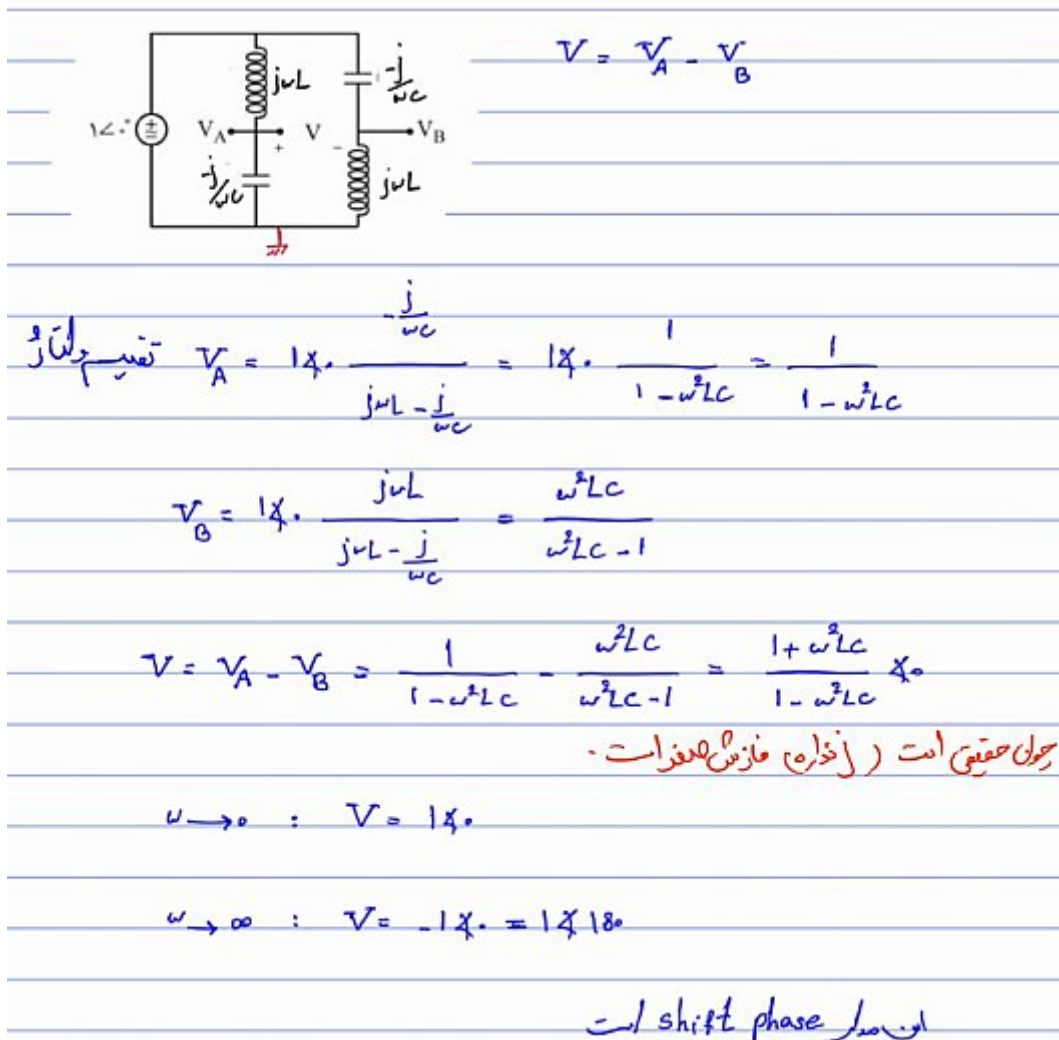 V = V_A - V_B
jωL
-j/ωC
۱∠۰°
V_A
+ V -
V_B
-j/ωC
jωL
تقسیم ولتاژ V_A = 1∡0 (-j/ωC)/(jωL - j/ωC) = 1∡0 1/(1 - ω²LC) = 1/(1 - ω²LC)
V_B = 1∡0 jωL/(jωL - j/ωC) = ω²LC/(ω²LC - 1)
V = V_A - V_B = 1/(1 - ω²LC) - ω²LC/(ω²LC - 1) = (1 + ω²LC)/(1 - ω²LC) ∡0
چون حقیقی است (j نداره) فازش صفر است.
ω → 0 : V = 1∡0
ω → ∞ : V = -1∡0 = 1∡180
این مدار shift phase است